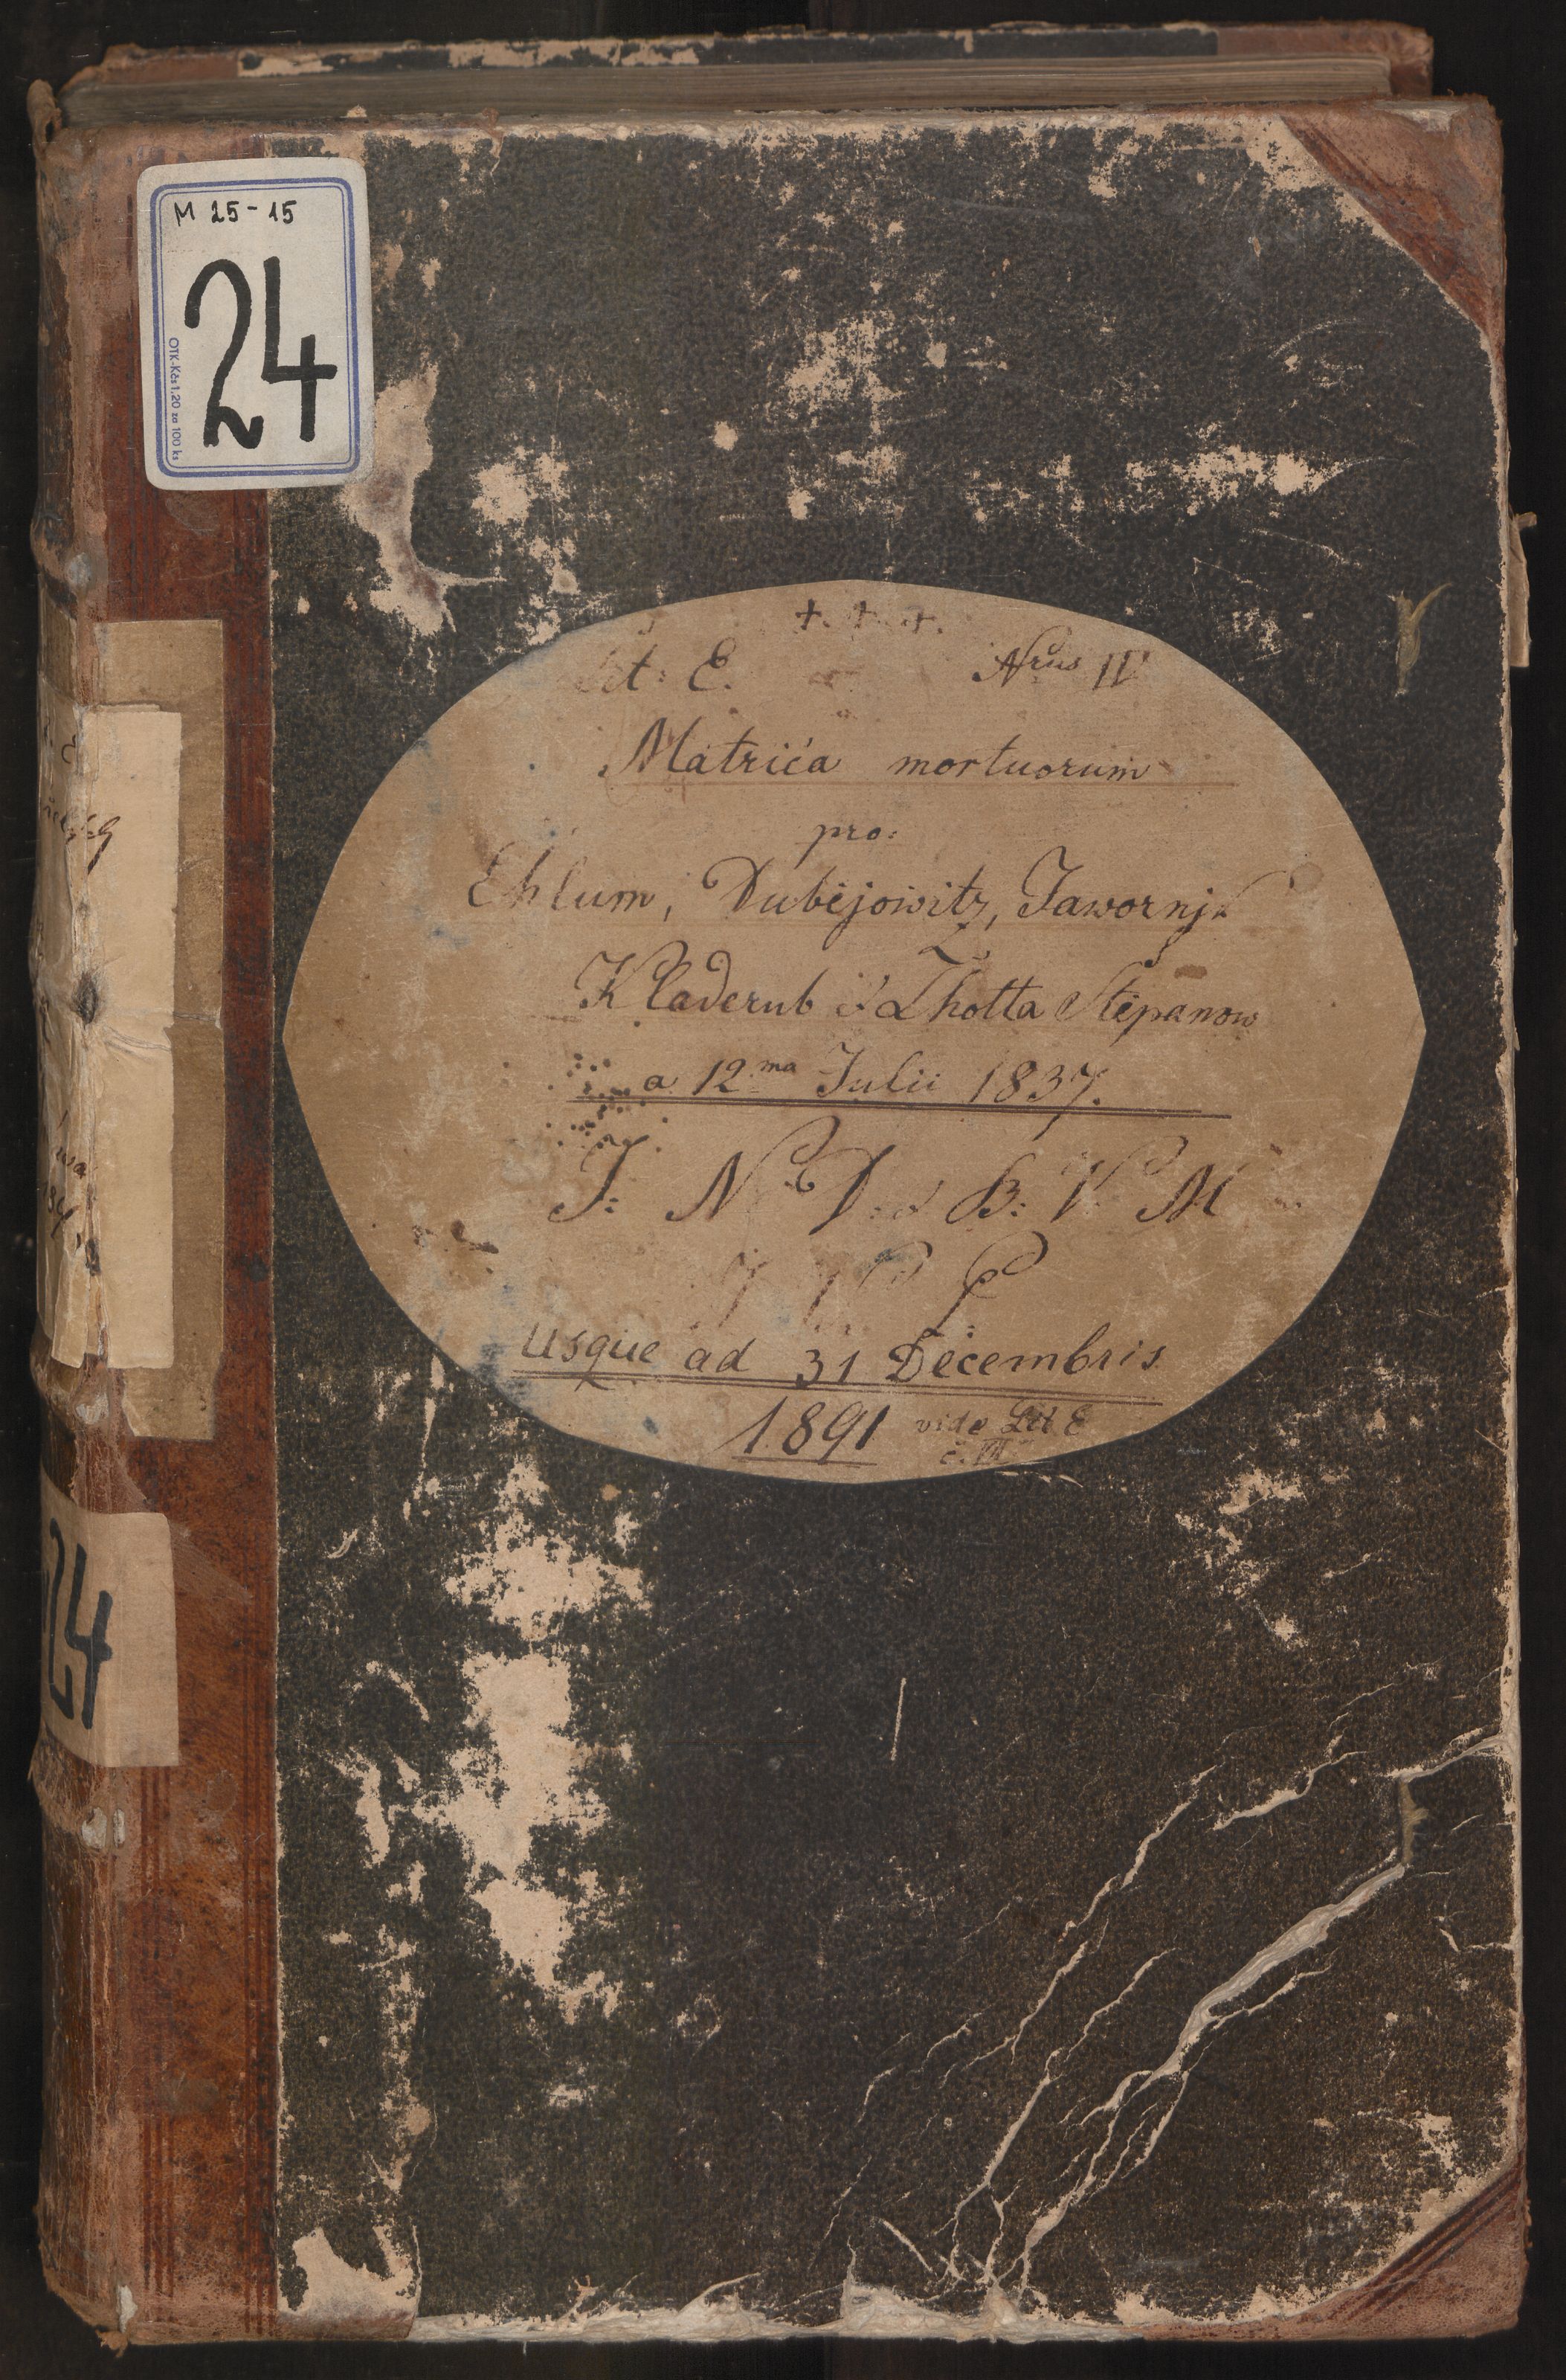 M 25-15
24
OTK-Kčs 1,20 za 100 ks
†. †. †.
Lit: E. Nrus IV
Matrica mortuorum
pro:
Chlum, Dubějowitz, Jawornjk
Kladerub & Lhotta Štěpanow
a 12ma Julii 1837.
I: N: D: B: V: M
Usque ad 31 Decembris
1891 vide Lit E
č. VII
24